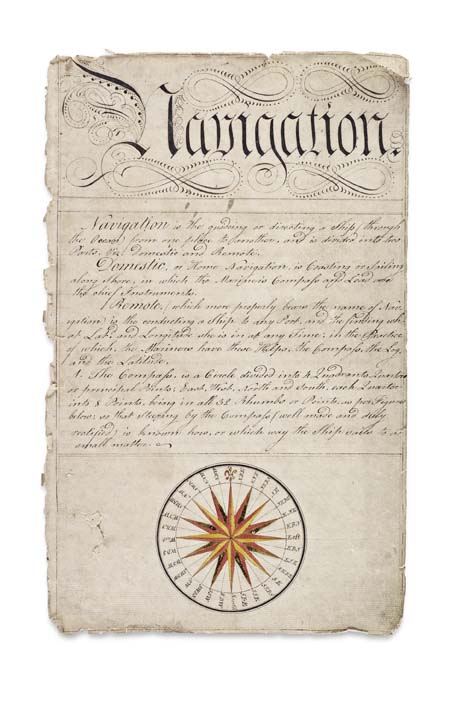 Navigation.
Navigation is the guiding or directing a Ship through
the Ocean from one place to Another, and is divided into two
Parts, Viz. Domestic and Remote.
Domestic, or Home Navigation, is Coasting or Sailing
along Shore, in which the Mariner's Compass and Lead are
the chief Instruments.
Remote, which more properly bears the name of Nav-
igation is the conducting a Ship to any Port, and the finding wh
at Lat. and Longitude she is in at any Time; in the Practice
of which, the Mariners have these Helps, the Compass, the Log,
and the Latitude.
1. The Compass, is a Circle divided into 4 Quadrants, Quarters
or principal Points, East, West, North and South, each Quarter
into 8 Points, being in all 32 Rhumbs or Points, as per Figure
below: so that steering by the Compass (well made and duly
rectified) is known how, or which way the Ship sails to a
small matter.